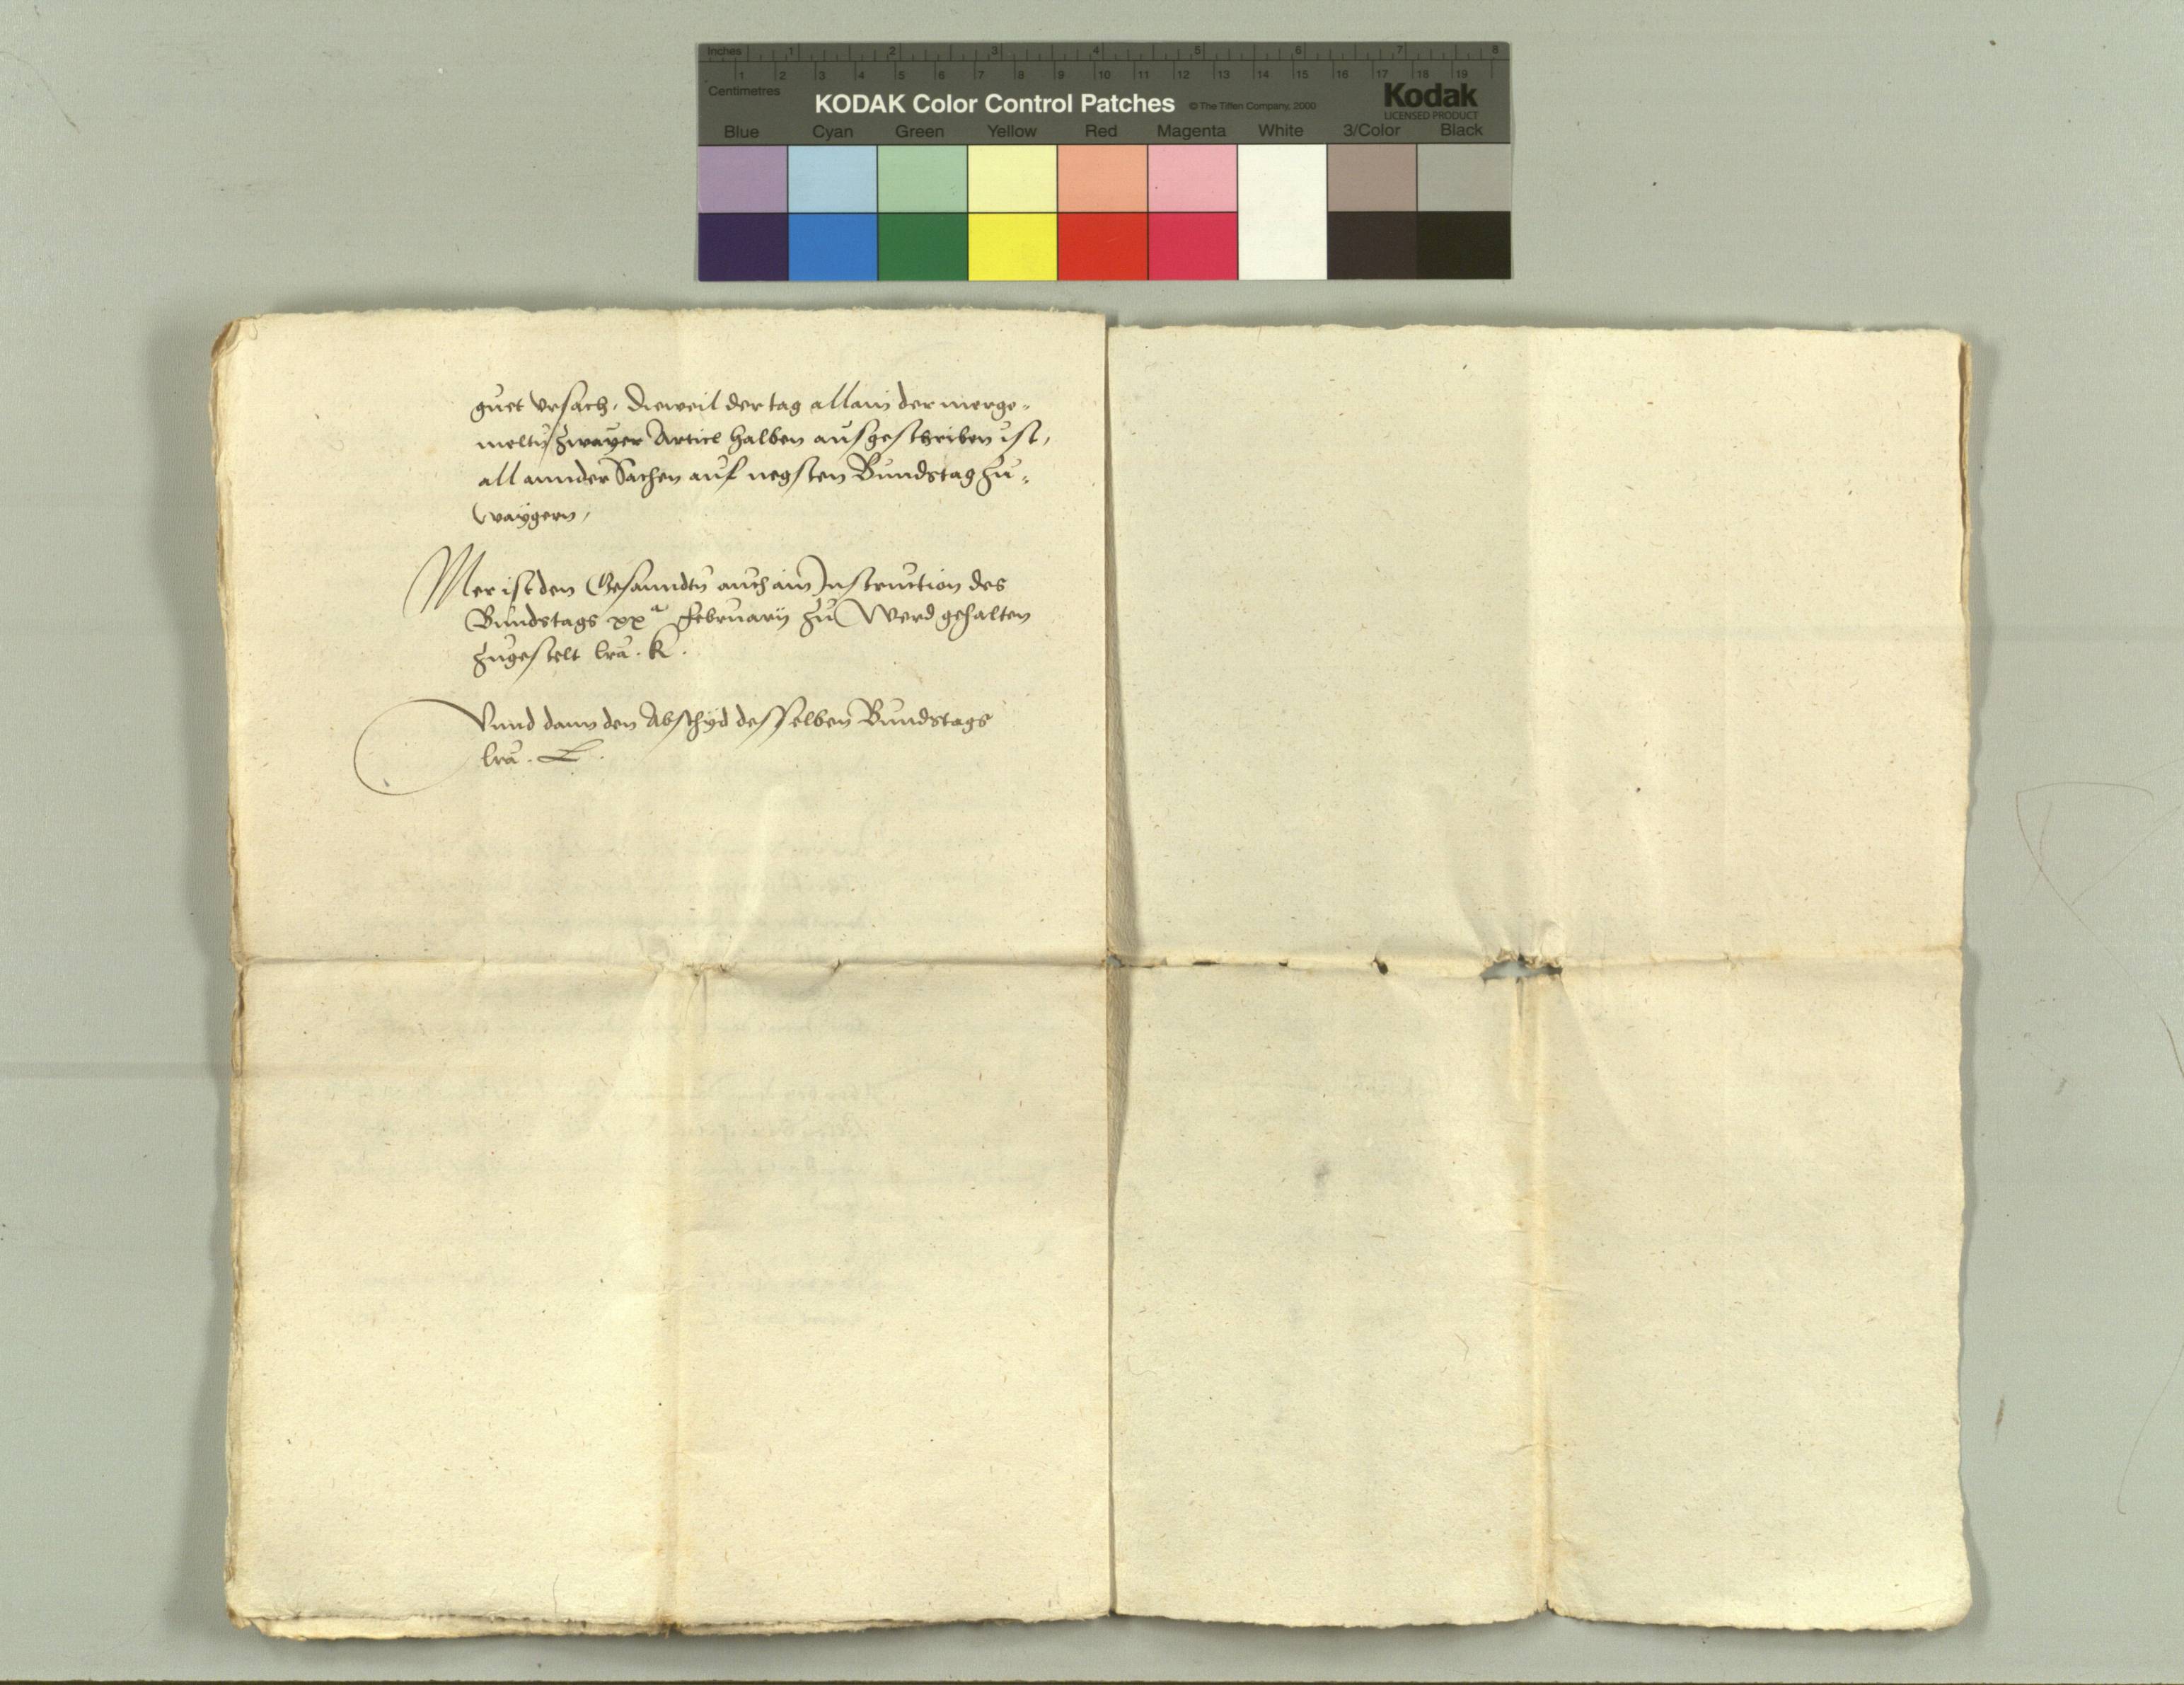 Inches 1 2 3 4 5 6 7 8
1 2 3 4 5 6 7 8 9 10 11 12 13 14 15 16 17 18 19
Centimetres
KODAK Color Control Patches © The Tiffen Company, 2000 Kodak
LICENSED PRODUCT
Blue Cyan Green Yellow Red Magenta White 3/Color Black
guet vrsach, dieweil der tag allain der merge-
melt zwayer Articl halben ausgeschriben ist,
all annder Sachen auf negsten Bundstag zu-
waygern,
Mer ist den Gesanndtn auch ain Instruction des
Bundstags xxa February zu Werd gehalten
zugestelt lra. K.
Vnnd dann den Abschyd desselben Bundstags
lra. L.